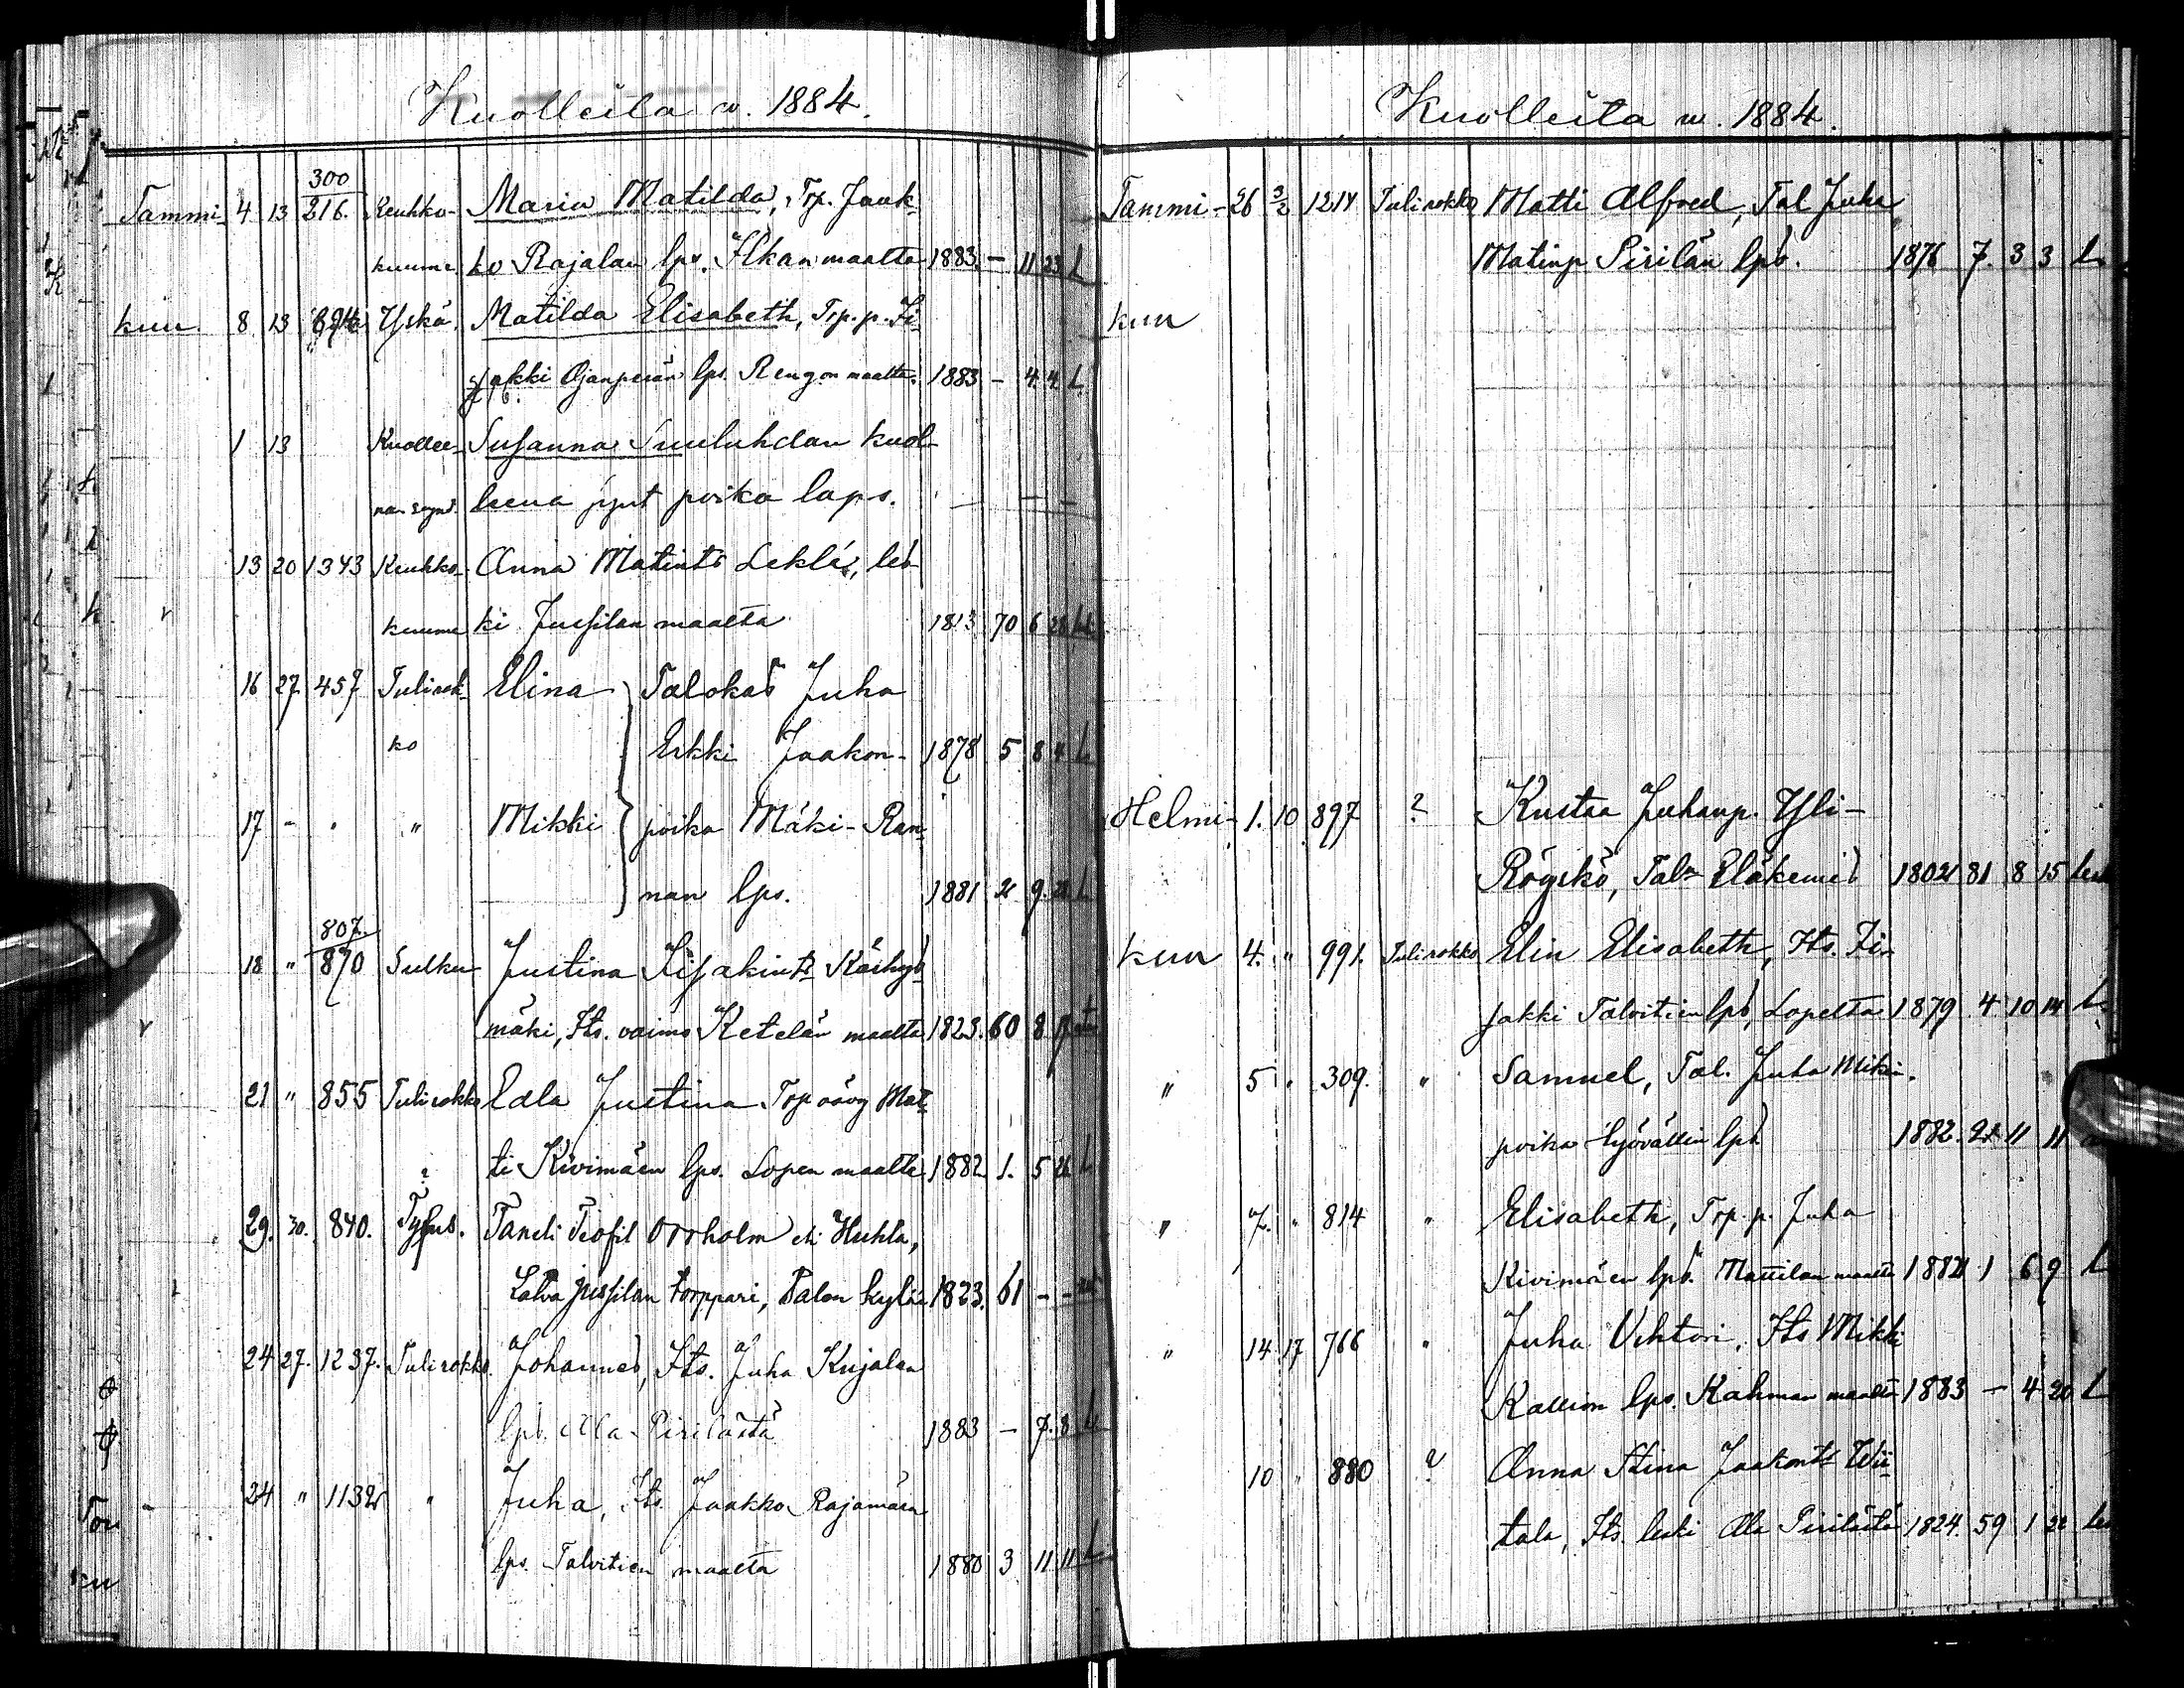 Kuolleita w. 1884.
300
Tammi- 4 13 216. Keuhko- Maria Matilda, Trp. Jaak-
kuume. ko Rajalan lps. Ilkan maalta 1883. – 11 23 L
kuu. 8 13 Yskä. Matilda Elisabeth, Trp. p. Ii-
jakki Ojanperän lps. Rengon maalta. 1883 – 4. 4. L
1 13 Kuollee- Susanna Suuluhdan kuol-
na synt. leena synt poika laps. – – –
13 20 1343 Keuhko- Anna Matints Leklé, les-
kuume ki Jussilan maalta 1813 70 6 28
16 27 457 Tulirok- Elina Talokas Juha
ko Erkki Jaakon- 1878 5 8 4 L
17 - " " Mikki poika Mäki-Ran-
nan lps. 1881 2 9. 21 L
807.
18 " 870 Sulku Justina Iisakints Kärhys-
mäki, Its. vaimo Ketelän maalta 1823. 60 8
21 " 855 Tulirokko Edla Justina Trp Mat-
ti Kivimäen lps. Lopen maalta 1882 1. 5 26 L
?
29. 30. 840. Tyfus. Taneli Teofil Orrholm eli Huhla,
Latva Jussilan torppari, Palon kylää 1823. 61 – –
24 27. 1237. Tulirokko. Johannes, Its. Juha Kujalan
lps. Ala-Pirilästä 1883 – 7. 8 L
24 " 1132 " Juha, Its. Jaakko Rajamäen
lps. Talvitien maalta 1880 3 11 11 L
Kuolleita w. 1884.
Tammi- 26 3/2 1214 Tulirokko Matti Alfred, Tal Juha
Matinp Pirilän lps. 1876 7. 3 3 L
kuu
Helmi- 1. 10 897 ? Kustaa Juhanp. Yli-
Röyskö, Taln Eläkemies 1802 81 8 15
kuu 4. " 991. Tulirokko Elin Elisabeth, Its. Ii-
jakki Talvitien lps, Lopelta 1879 4 10 14 L
" 5 " 309. " Samuel, Tal. Juha Mikin-
poika Työvältin lps. 1882. 11 11
" 7. " 814 " Elisabeth, Trp. p. Juha
Kivimäen lps. Mattilan maalta 1882 1 6 9 L
" 14 17 766 " Juha Vihtori, Its Mikki
Kallion lps. Kahman maalta 1883 – 4 20 L
10 " 880 ? Anna Stina Jaakonts Wii-
tala, Its. leski Ala Pirilästä 1824. 59 1 22